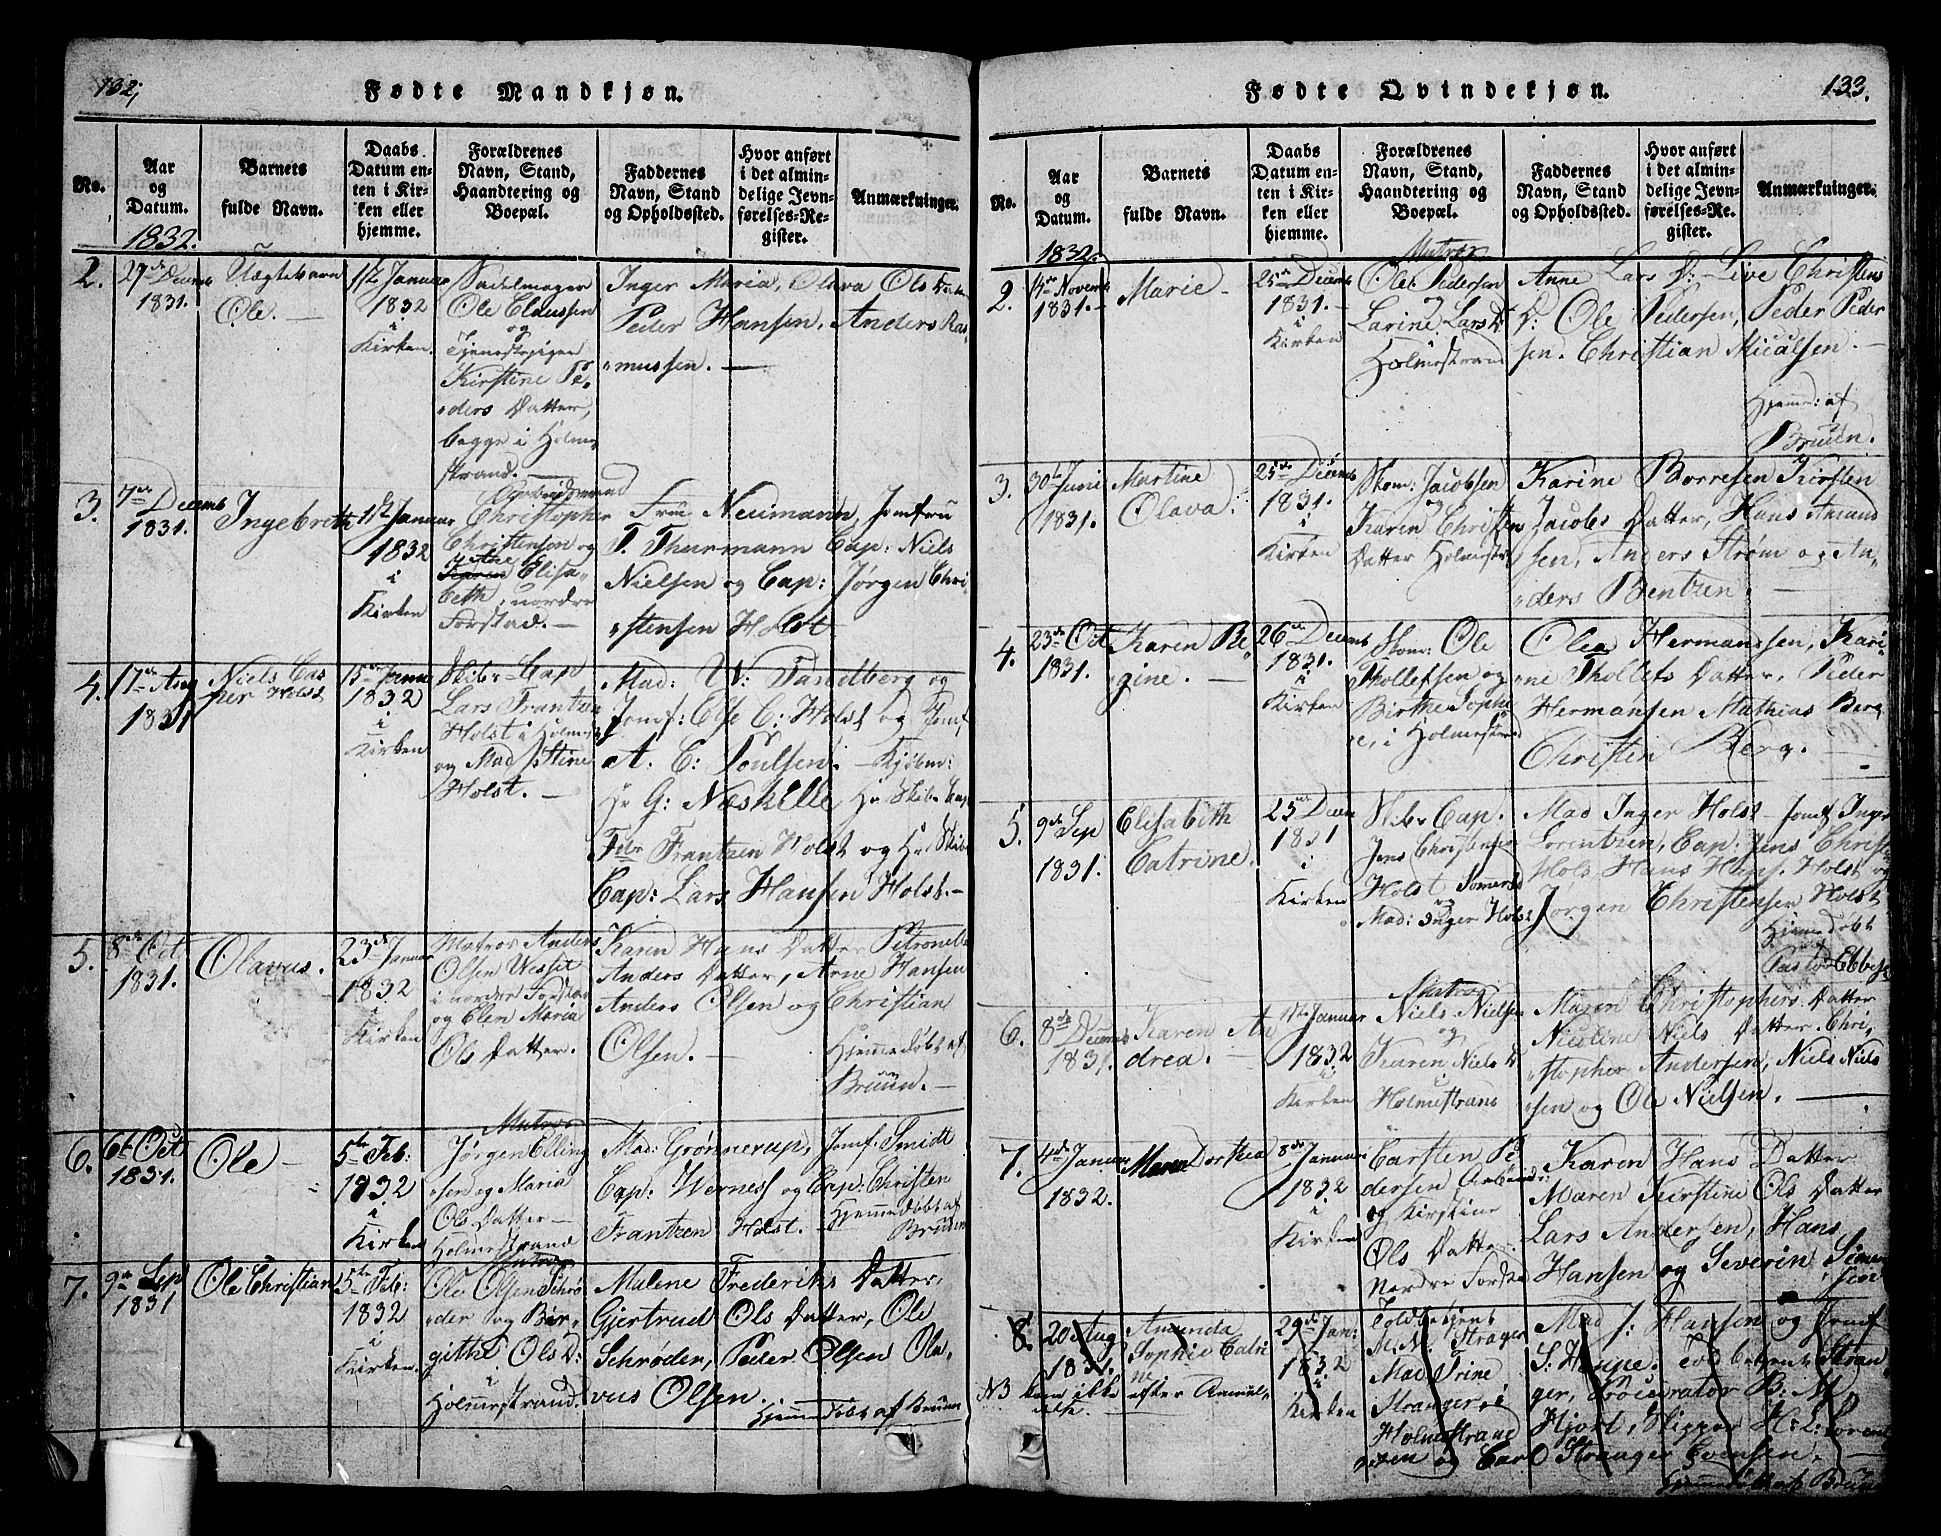 132,
Fødte Mandkjøn.
No.
Aar og Datum.
Barnets fulde Navn.
Daabs Datum enten i Kirken eller hjemme.
Forældrenes Navn, Stand, Haandtering og Boepæl.
Faddernes Navn, Stand og Opholdssted.
Hvor anført i det almindelige Jevnførelses-Register.
Anmærkninger.
1832.
2.
27de Decemb
1831.
Uægtebarn
Ole. —
1ste Januar
1832
i
Kirken.
Sadelmager
Ole Claussen
og
Tjenestepigen
Kirstine Pe-
ders Datter,
begge i Holme-
strand. —
Inger Maria, Olava Ols Datter
Peder Hansen, Anders Ras-
mussen. —
3.
7de Decemb
1831.
Ingebreth
1ste Januar
1832
i
Kirken
Arbeidsmand
Christopher
Christensen og
Elisa-
beth, nordre
Forstad. —
Frue Neumann, Jomfru
T. Thurmann Cap: Niels
Nielsen og Cap: Jørgen Chri-
stensen Holst
4.
17de Aug
1831
Niels Cas
per Holst
15de Janu
1832
i
Kirken
Skibs-Cap
Lars Frantzen
Holst i Holmest
og Mad Stine
Holst. —
Mad: W: Sandberg og
Jomf: Else C: Holst og Jomf
A. C: Poulsen. — Kjøbm:
Hr G: Næskelle Hr Skibs Cap
Fdr Frantzen Holst og Hr. Skibs
Cap: Lars Hansen Holst. —
5.
8de Oct
1831.
Olavus.
23de Januar
1832
i
Kirken
Matros Anders
Olsen Wesset
i nordre Forstad
og Elen Maria
Ols Datter.
Karen Hans Datter Petronelle
Anders Datter, Arne Hansen
Anders Olsen og Christian
Olsen. —
Hjemmedøbt af
Bruun. —
6.
6te Oct
1831.
Ole —
5te Feb:
1832
i
Kirken
Matros
Jørgen Elling-
sen og Maria
Ols Datter —
Holmestrand
Mad: Grønnerup, Jomf: Smidt
Cap: Werness og Cap: Christen
Frantzen Holst. —
Hjemmedøbt af
Bruun
7.
9de Sep
1831
Ole Christian
5te Feb:
1832
i
Kirken.
Matros
Ole Olsen Schrø-
der og Bir-
gitthe Ols D:
Holmestrand.
Malene Frederiks Datter,
Gjertrud Ols Datter, Ole
Schrøder, Peder Olsen Ola-
vus Olsen.
Hjemmedøbt af Bruun
133.
Fødte Qvindekjøn.
No.
Aar og Datum.
Barnets fulde Navn.
Daabs Datum enten i Kirken eller hjemme.
Forældrenes Navn, Stand, Haandtering og Boepæl.
Faddernes Navn, Stand og Opholdssted.
Hvor anført i det almindelige Jevnførelses-Re. gister.
Anmærkninger.
1832.
2.
Novemb
1831. —
Marie —
25de Decemb
1831. —
i
Kirken
Matros
Ole Pedersen
og
Larine Lars D:
Holmestrand
Anne Lars D: Live Christens
D: Ole Pedersen, Peder Peder
sen. Christian Micalsen. —
Hjemmed: af
Bruun.
3.
30te Juni
1831.
Martine
Olava.
25de Decemb
1831.
i
Kirken
Skom: Jacobsen
og
Karen Christen
Datter Holmestr
Karine Borresen Kirsten
Jacobs Datter, Hans Amund
sen, Anders Strøm og An-
ders Bentzen. —
4.
23de Oct
1831.
Karen Re-
gine. —
26de Decemb
1831.
i
Kirken
Skom: Ole
Thollefsen og
Birthe Sophi
e, i Holmestrand
Olea Hermanssen, Kari-
ne Thollefs Datter, Peder
Hermansen Mathias Berg
Christen Berg. —
5.
9de Sep
1831.
Elisabeth
Catrine.
25de Decem
1831
i
Kirken
Skibs Cap.
Jens Christensen
Holst Sommersb
og
Mad: Inger Holst
Mad Inger Holst — Jomf Inger
Lorentzen, Cap: Jens Christ
Hols, Hans Hans: Holst og
Jørgen Christensen Holst
Hjemmedøbt
af
Pastor Ebbesen
6.
8de Decemb
1831.
Karen An
drea. —
1ste Januar
1832
i
Kirken
Matros
Niels Nielsen
og
Karen Niels D
i
Holmestrand
Maren Christophers Datter
Nicoline Niels Datter. Chri-
stopher Andersen, Niels Niel-
sen og Ole Nielsen. —
7.
4de Januar
1832.
Maren Dorthea
8de Januar
1832
i
Kirken
Carsten Pe
dersen Arbeidsm:
og Kirstine
Ols Datter.
Nordre Forstad
Karen Hans Datter
Maren Kirstine Ols Datter
Lars Andersen, Hans
Hansen og Severin Simen
sen
8.
20 Aug
1831.
Amanda
Sophie Catri
ne
NB kom ikke efter Anmel-
delse.
29de Jan:
1832
i
Kirken
Toldbetjent
M. N. Stranger
Mad Trine
Stranger, i
Holmestrand
Mad J: Hansen og Jomf
S. Hoppe. Toldbetjent Stran
ger, Procurator B: M
Hjort, Skipper H: L: Lorent
zen og Carl Stranger Evensen. —
Hjemmedøbt af Bruun